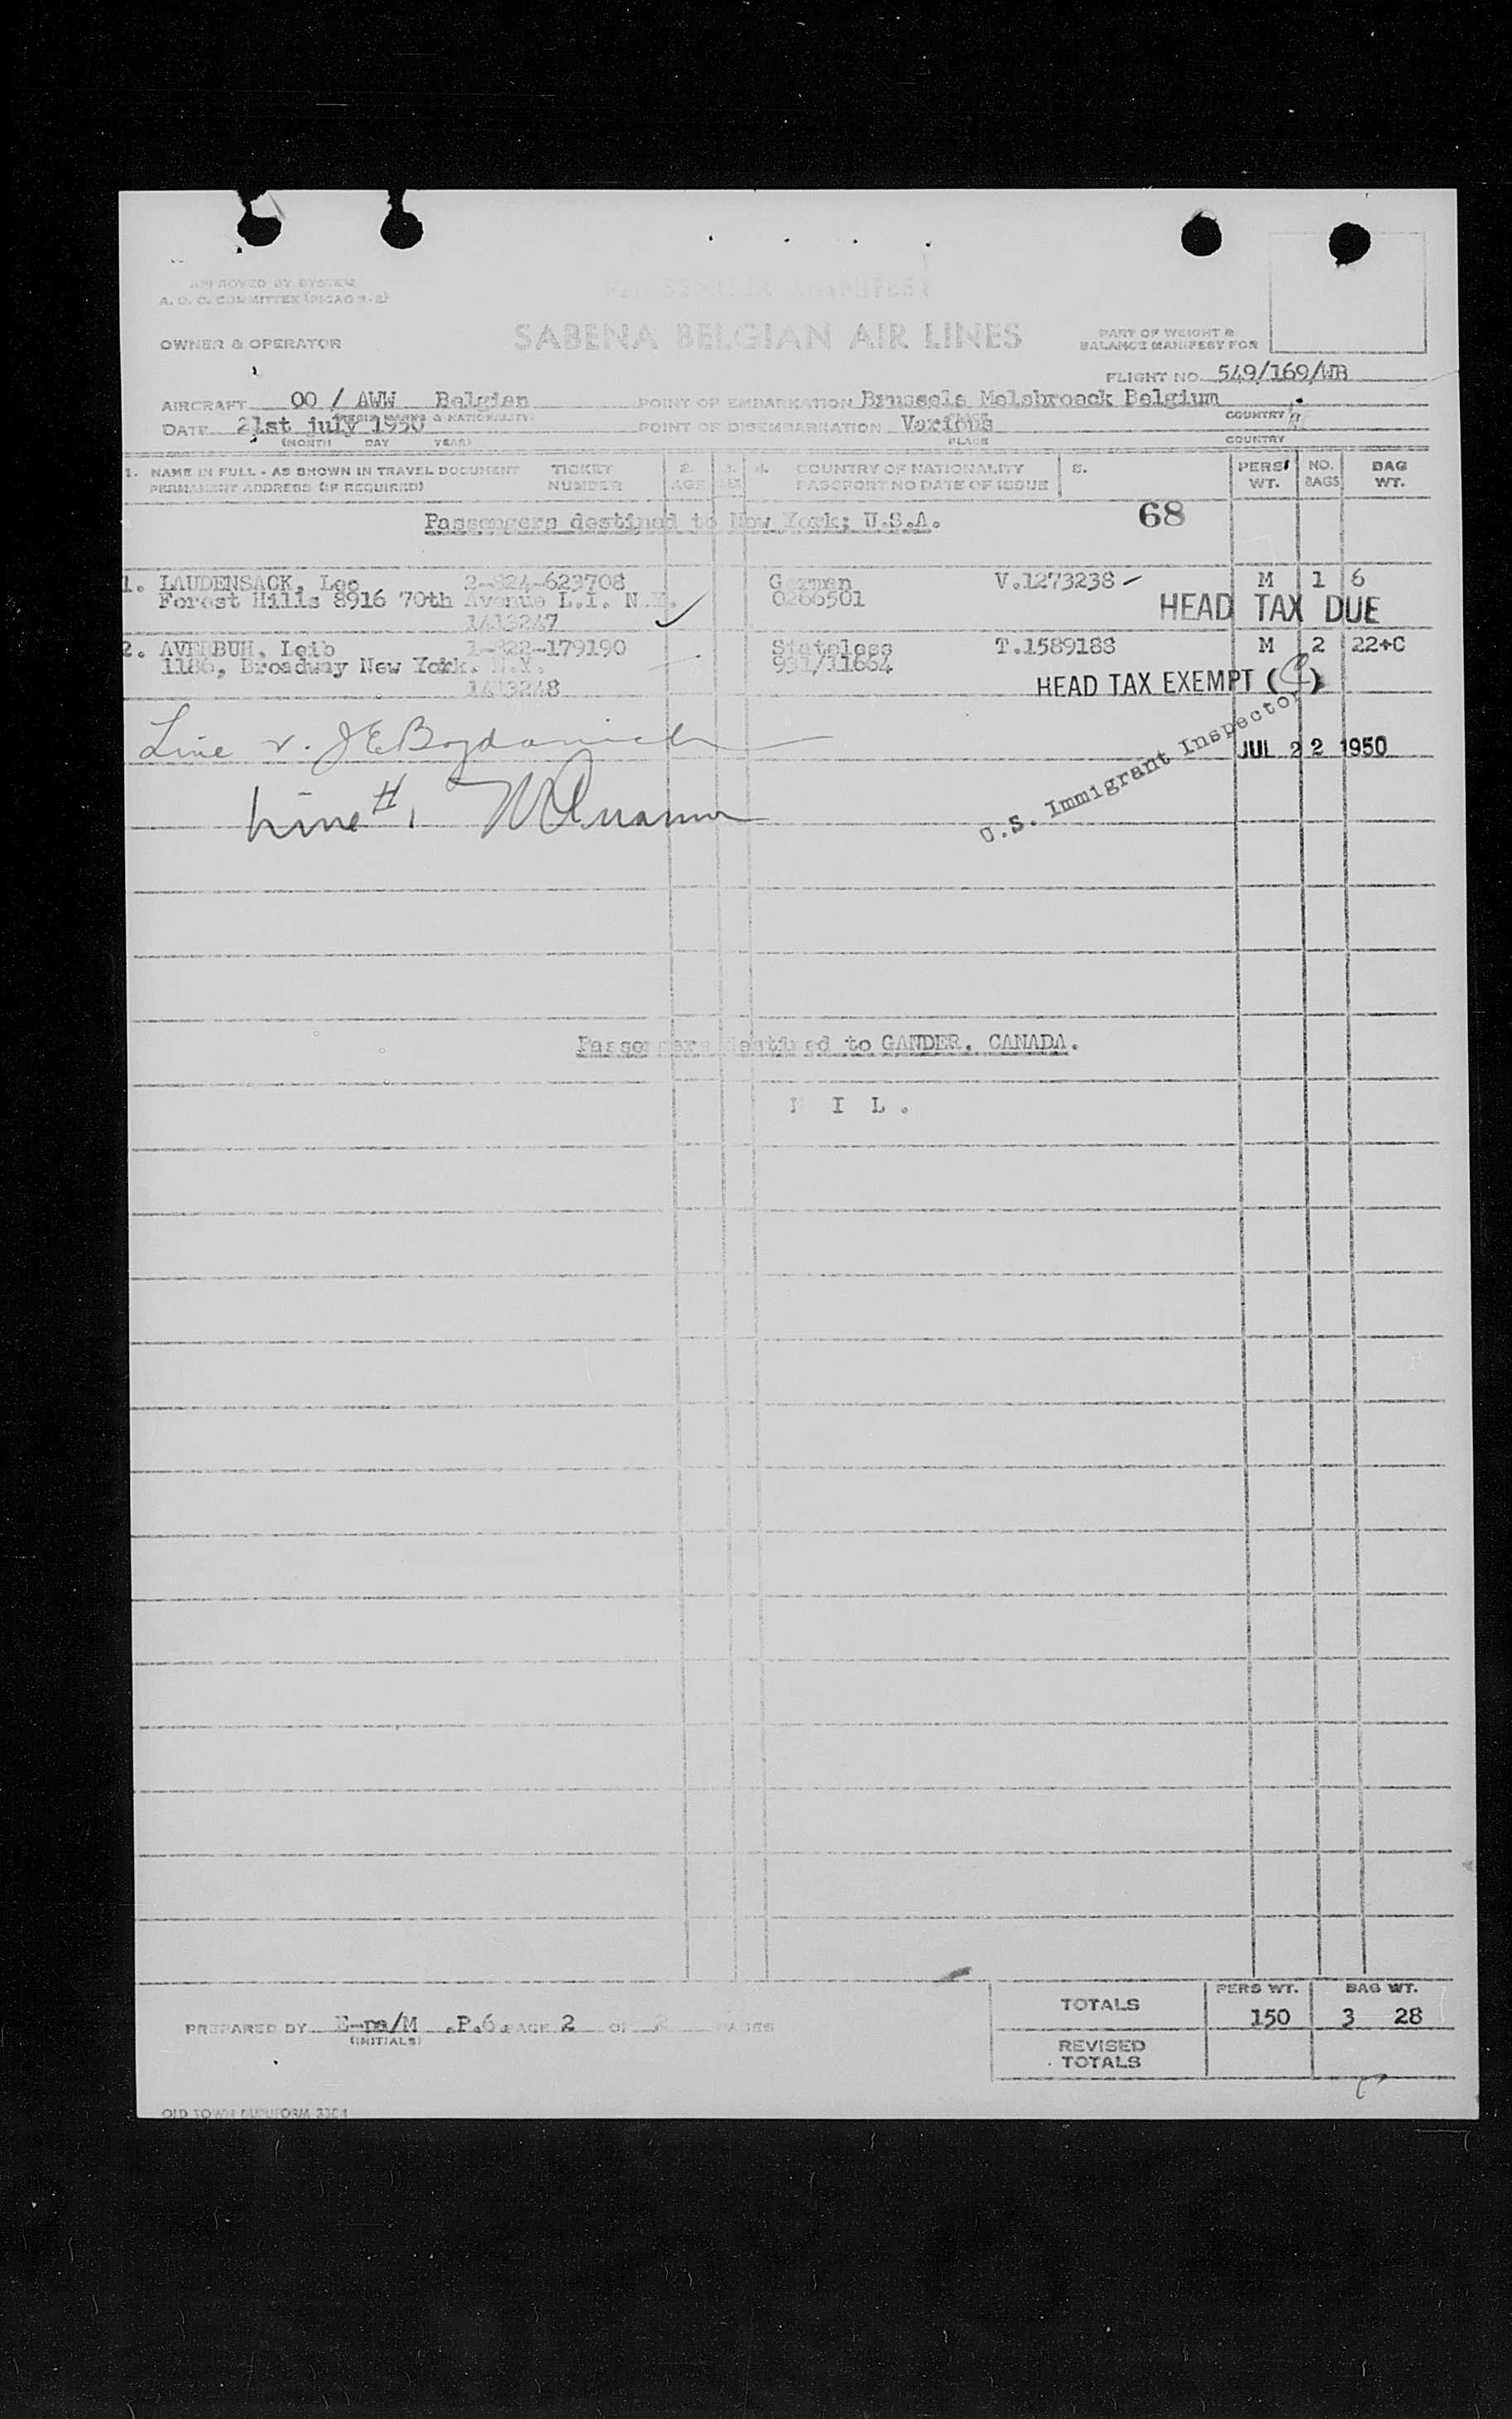 APPROVED BY SYSTEM
A.O.C. COMMITTEE (PICAO 9-2)
PASSENGER MANIFEST
OWNER & OPERATOR
SABENA BELGIAN AIR LINES
PART OF WEIGHT &
BALANCE MANIFEST FOR
FLIGHT NO. 549/169/WB
AIRCRAFT OO / AWW Belgian POINT OF EMBARKATION Brussels Melsbroeck Belgium
MARKS & NATIONALITY) PLACE COUNTRY
DATE 21st july 1950 POINT OF DISEMBARKATION Various
(MONTH DAY YEAR) PLACE COUNTRY
1. NAME IN FULL - AS SHOWN IN TRAVEL DOCUMENT TICKET 2. 3. 4. COUNTRY OF NATIONALITY 5. PERS NO. BAG
PERMANENT ADDRESS (IF REQUIRED) NUMBER AGE SEX PASSPORT NO DATE OF ISSUE WT. BAGS WT.
Passengers destined to New York; U.S.A. 68
1. LAUDENSACK, Leo 2-824-623708 German V.1273238 M 1 6
Forest Hills 8916 70th Avenue L.I. N.Y. 0266501 HEAD TAX DUE
1413247
2. AVERBUH, Leib 1-822-179190 Stateless T.1589188 M 2 22+C
1186, Broadway New York. N.Y. 931/11664
1413248 HEAD TAX EXEMPT ( )
Line J E Bogdanich
U.S. Immigrant Inspector JUL 22 1950
Line # 1
Passengers destined to GANDER. CANADA.
N I L .
TOTALS PERS WT. BAG WT.
150 3 28
PREPARED BY E-ma/M .P.6. PAGE 2 OF 2 PAGES
(INITIALS)
REVISED
TOTALS
OLD TOWN DUPLIFORM 3304